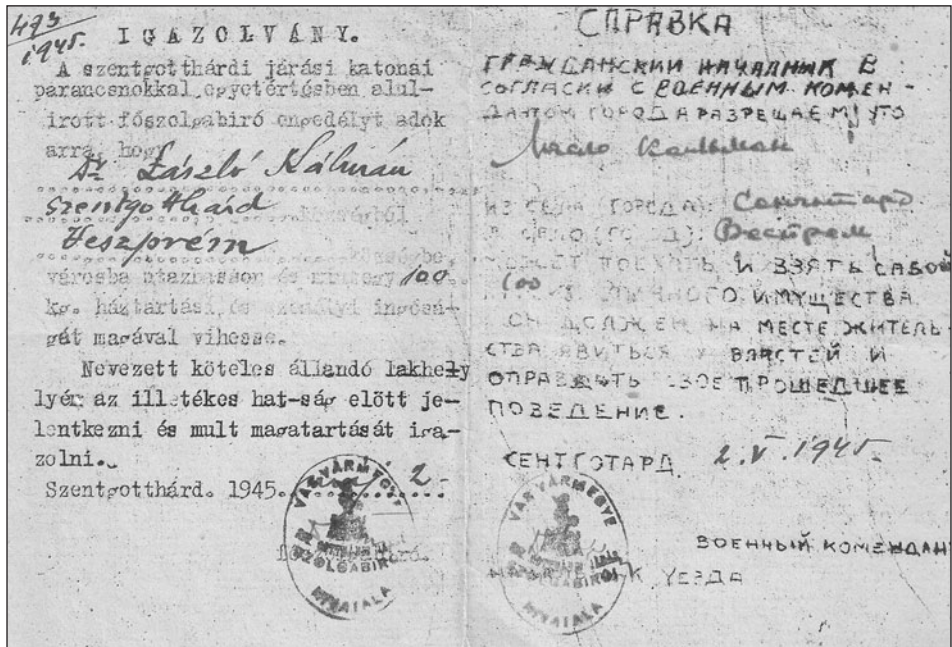 493
1945.
IGAZOLVÁNY.
A szentgotthárdi járási katonai
parancsnokkal egyetértésben alul-
irott főszolgabiró engedélyt adok
arra, hogy
Dr László Kálmán
Szentgotthárd községből
Veszprém községbe,
városba utazhasson és mintegy 100
kg. háztartási és személyi ingósá-
gát magával vihesse.
Nevezett köteles állandó lakhely
lyén az illetékes hat-ság előtt je-
lentkezni és mult magatartását iga-
zolni.
Szentgotthárd. 1945. máj 2.
VASVÁRMEGYE
SZOLGABIRÓI
HIVATALA
СПРАВКА
ГРАЖДАНСКИИ НАЧАЛНИК В
СОГЛАСКИ С ВОЕННЫМ КОМЕН-
ДАНТОМ ГОРОДА РАЗРЕЩАЕМ УТО
Ласло Кальман
ИЗ СЕЛА (ГОРОДА): Сентготард
В СЕЛО (ГОРОД): Веспрем
МОЖЕТ ПОЕХАТЬ И ВЗЯТЬ САБОЙ
100 ЛИЧНОГО ИМУЩЕСТВА
ОН ДОЛЖЕН НА МЕСТЕ ЖИТЕЛЬ-
СТВА ЯВИТЬСЯ У ВЛАСТЕЙ И
ОПРАВДАТЬ СВОЕ ПРОШЕДШЕЕ
ПОВЕДЕНИЕ.
СЕНТГОТАРД 2.V.1945.
VASVÁRMEGYE
SZOLGABIRÓI
HIVATALA
ВОЕННЫЙ КОМЕНДАНТ
УЕЗДА